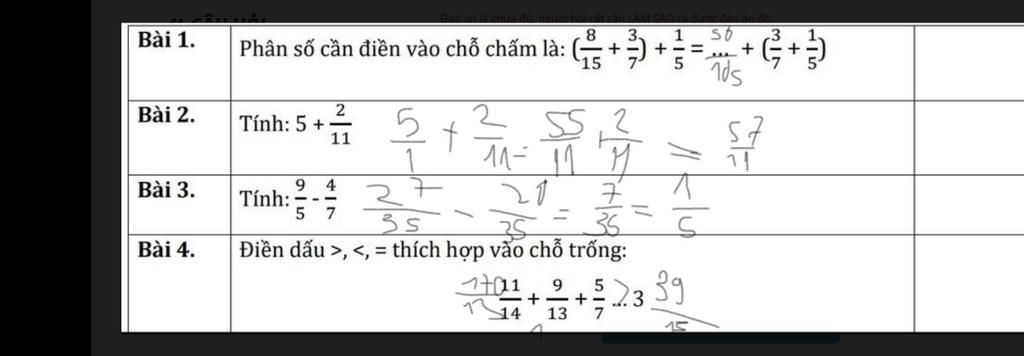 Đáp án là chưa đủ, người hỏi rất cần LÀM SAO ra được đáp án đó
Bài 1. Phân số cần điền vào chỗ chấm là: (8/15 + 3/7) + 1/5 = ... + (3/7 + 1/5)
105
Bài 2. Tính: 5 + 2/11 5/1 + 2/11 = 55/11 + 2/11 = 57/11
Bài 3. Tính: 9/5 - 4/7 27/35 - 20/35 = 7/35 = 1/5
Bài 4. Điền dấu >, <, = thích hợp vào chỗ trống:
11/14 + 9/13 + 5/7 ... 3 39